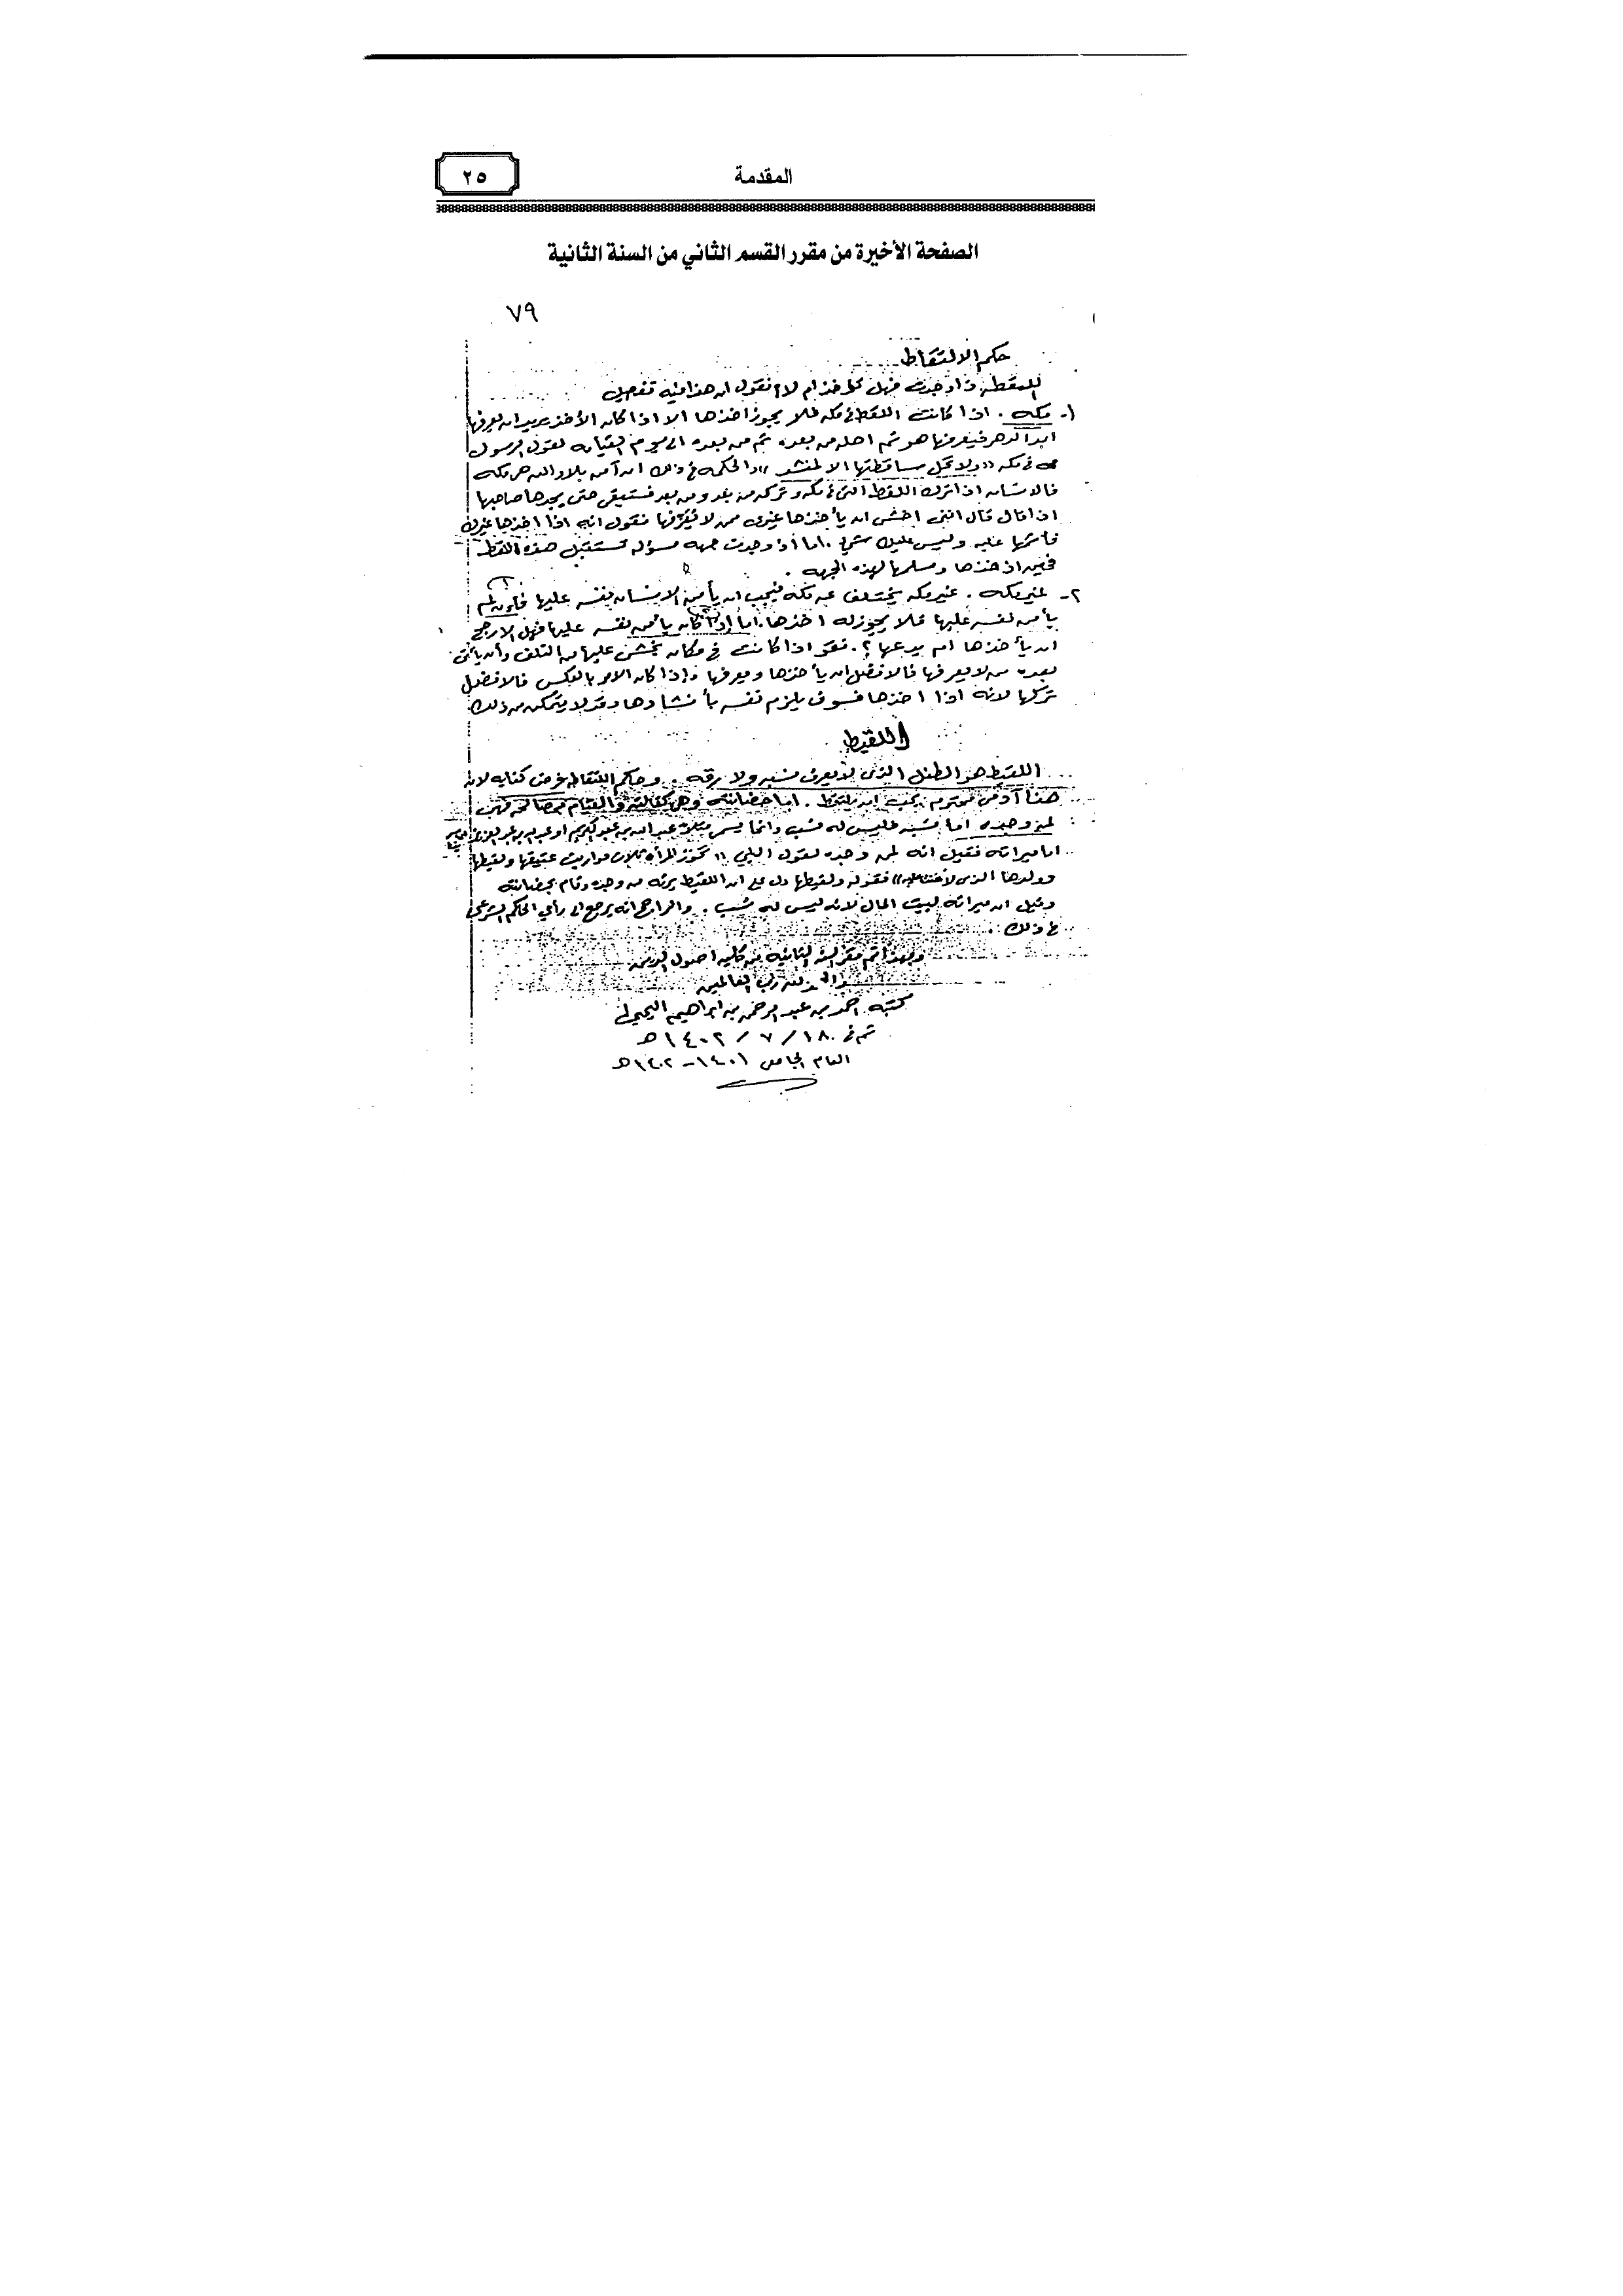 المقدمة
٢٥
الصفحة الأخيرة من مقرر القسم الثاني من السنة الثانية
٧٩
حكم الالتقاط
اللقطه اذا وجدت فهل تؤخذ ام لا؟ نقول ان هذا فيه تفصيل
١- مكه . اذا كانت اللقطه في مكه فلا يجوز اخذها الا اذا كان الأخذ يريد ان يعرفها
ابد الدهر فيعرفها هو ثم اهله من بعده ثم من بعده الى يوم القيامه لقول الرسول
في مكه «ولا تحل ساقطتها الا لمنشد» والحكمه في ذلك ان آمن بلاد الله هي مكه
فالانسان اذا ترك اللقطه التي في مكه وتركه من بعد ومن بعد فستبقى حتى يجدها صاحبها
اذا قال قائل انني اخشى ان يأخذها غيري ممن لا يعرفها نقول انه اذا اخذها غيرك
فاثمها عليه وليس عليك شيء . اما اذا وجدت جهه مسؤله تستقبل هذه اللقط
اخذها لهذه الجهه .
٢- غير مكه . غير مكه يختلف عن مكه فيجب ان يأمن الانسان نفسه عليها فإن لم
يأمن نفسه عليها فلا يجوز له اخذها . اما اذا كان يأمن نفسه عليها فهل الارجح
ان يأخذها ام يدعها ؟ . اذا كانت في مكان يخشى عليها من التلف وأن يأتي
بعده من لا يعرفها فالافضل ان يأخذها ويعرفها واذا كان الامر بالعكس فالافضل
تركها لانه اذا اخذها فسوف يلزم نفسه بأنشادها وقد لا يتمكن من ذلك
اللقيط
اللقيط هو الطفل الذي لا يعرف نسبه ولا رقه . وحكم التقاطه فرض كفايه لان
هذا آدمي محترم يجب ان يلتقط . اما حضانته وهي كفالته والقيام بمصالحه فهي
لمن وجده اما نسبه فليس له نسب وانما يسمى مثلا عبدالله بن عبدالكريم او
اما ميراثه فقيل انه لمن وجده لقول النبي «تحوز المرأه ثلاث مواريث عتيقها ولقيطها
وولدها الذي لاعنت عليه» فقوله ولقيطها دل على ان اللقيط يرثه من وجده وقام بحضانته
وقيل ان ميراثه لبيت المال لانه ليس له نسب . والراجح انه يرجع الى رأي الحاكم الشرعي
في ذلك .
وبهذا تم مقرر السنه الثانيه من كليه اصول الدين
والحمد لله رب العالمين
كتبه احمد بن عبدالرحمن بن ابراهيم
تم في ١٨ / ٧ / ١٤٠٢ هـ
العام الجامعي ١٤٠١ – ١٤٠٢ هـ